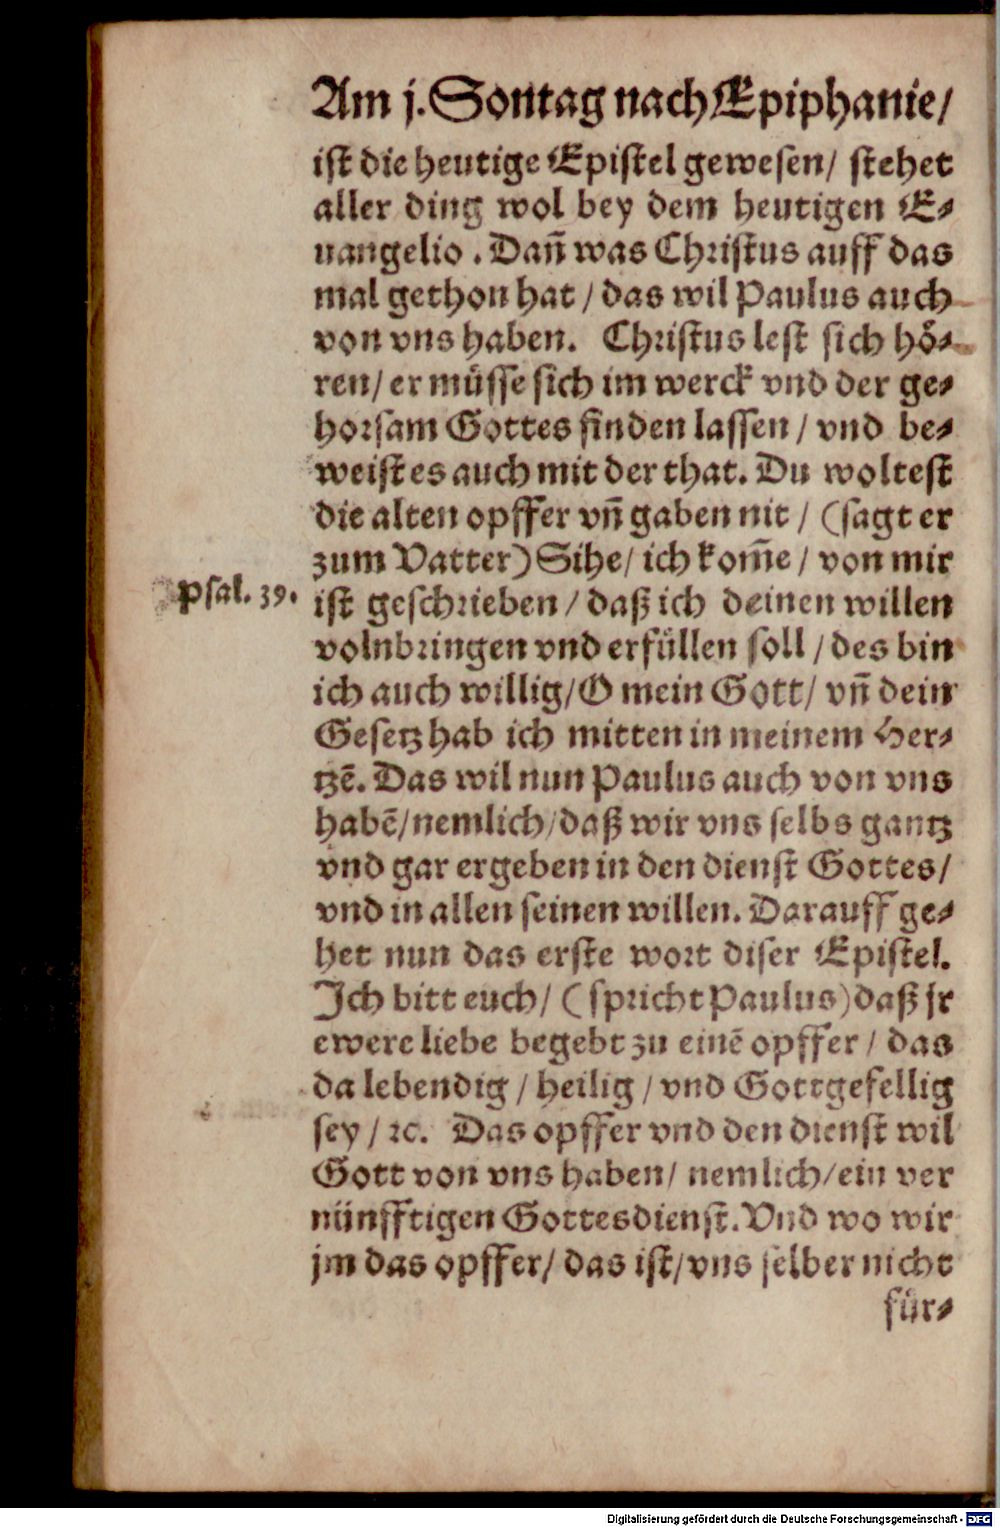 Am j. Sontag nach Epiphanie/
ist die heutige Epistel gewesen/ stehet
aller ding wol bey dem heutigen E⸗
uangelio. Dañ was Christus auff das
mal gethon hat / das wil Paulus auch
von vns haben. Christus lest sich hoͤ⸗
ren/ er muͤsse sich im werck vnd der ge⸗
horsam Gottes finden lassen / vnd be⸗
weist es auch mit der that. Du woltest
die alten opffer vñ gaben nit / (sagt er
zum Vatter) Sihe/ ich kom̃e / von mir
Psal. 39.
ist geschrieben / daß ich deinen willen
volnbringen vnd erfuͤllen soll / des bin
ich auch willig/ O mein Gott/ vñ dein
Gesetz hab ich mitten in meinem Her⸗
tzẽ. Das wil nun Paulus auch von vns
habẽ/ nemlich/ daß wir vns selbs gantz
vnd gar ergeben in den dienst Gottes/
vnd in allen seinen willen. Darauff ge⸗
het nun das erste wort diser Epistel.
Ich bitt euch/ (spricht Paulus) daß jr
ewere liebe begebt zu einẽ opffer / das
da lebendig / heilig / vnd Gottgefellig
sey / ꝛc. Das opffer vnd den dienst wil
Gott von vns haben/ nemlich/ ein ver
nünfftigen Gottesdienst. Vnd wo wir
jm das opffer/ das ist/ vns selber nicht
fuͤr⸗
Digitalisierung gefördert durch die Deutsche Forschungsgemeinschaft - DFG